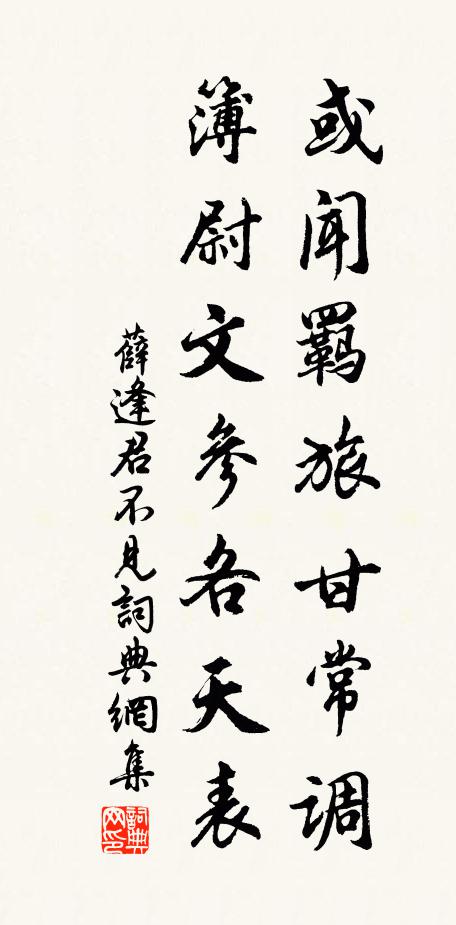 或闻羁旅甘常调
簿尉文参各天表
薛逢君不见詞典網集
詞典网印